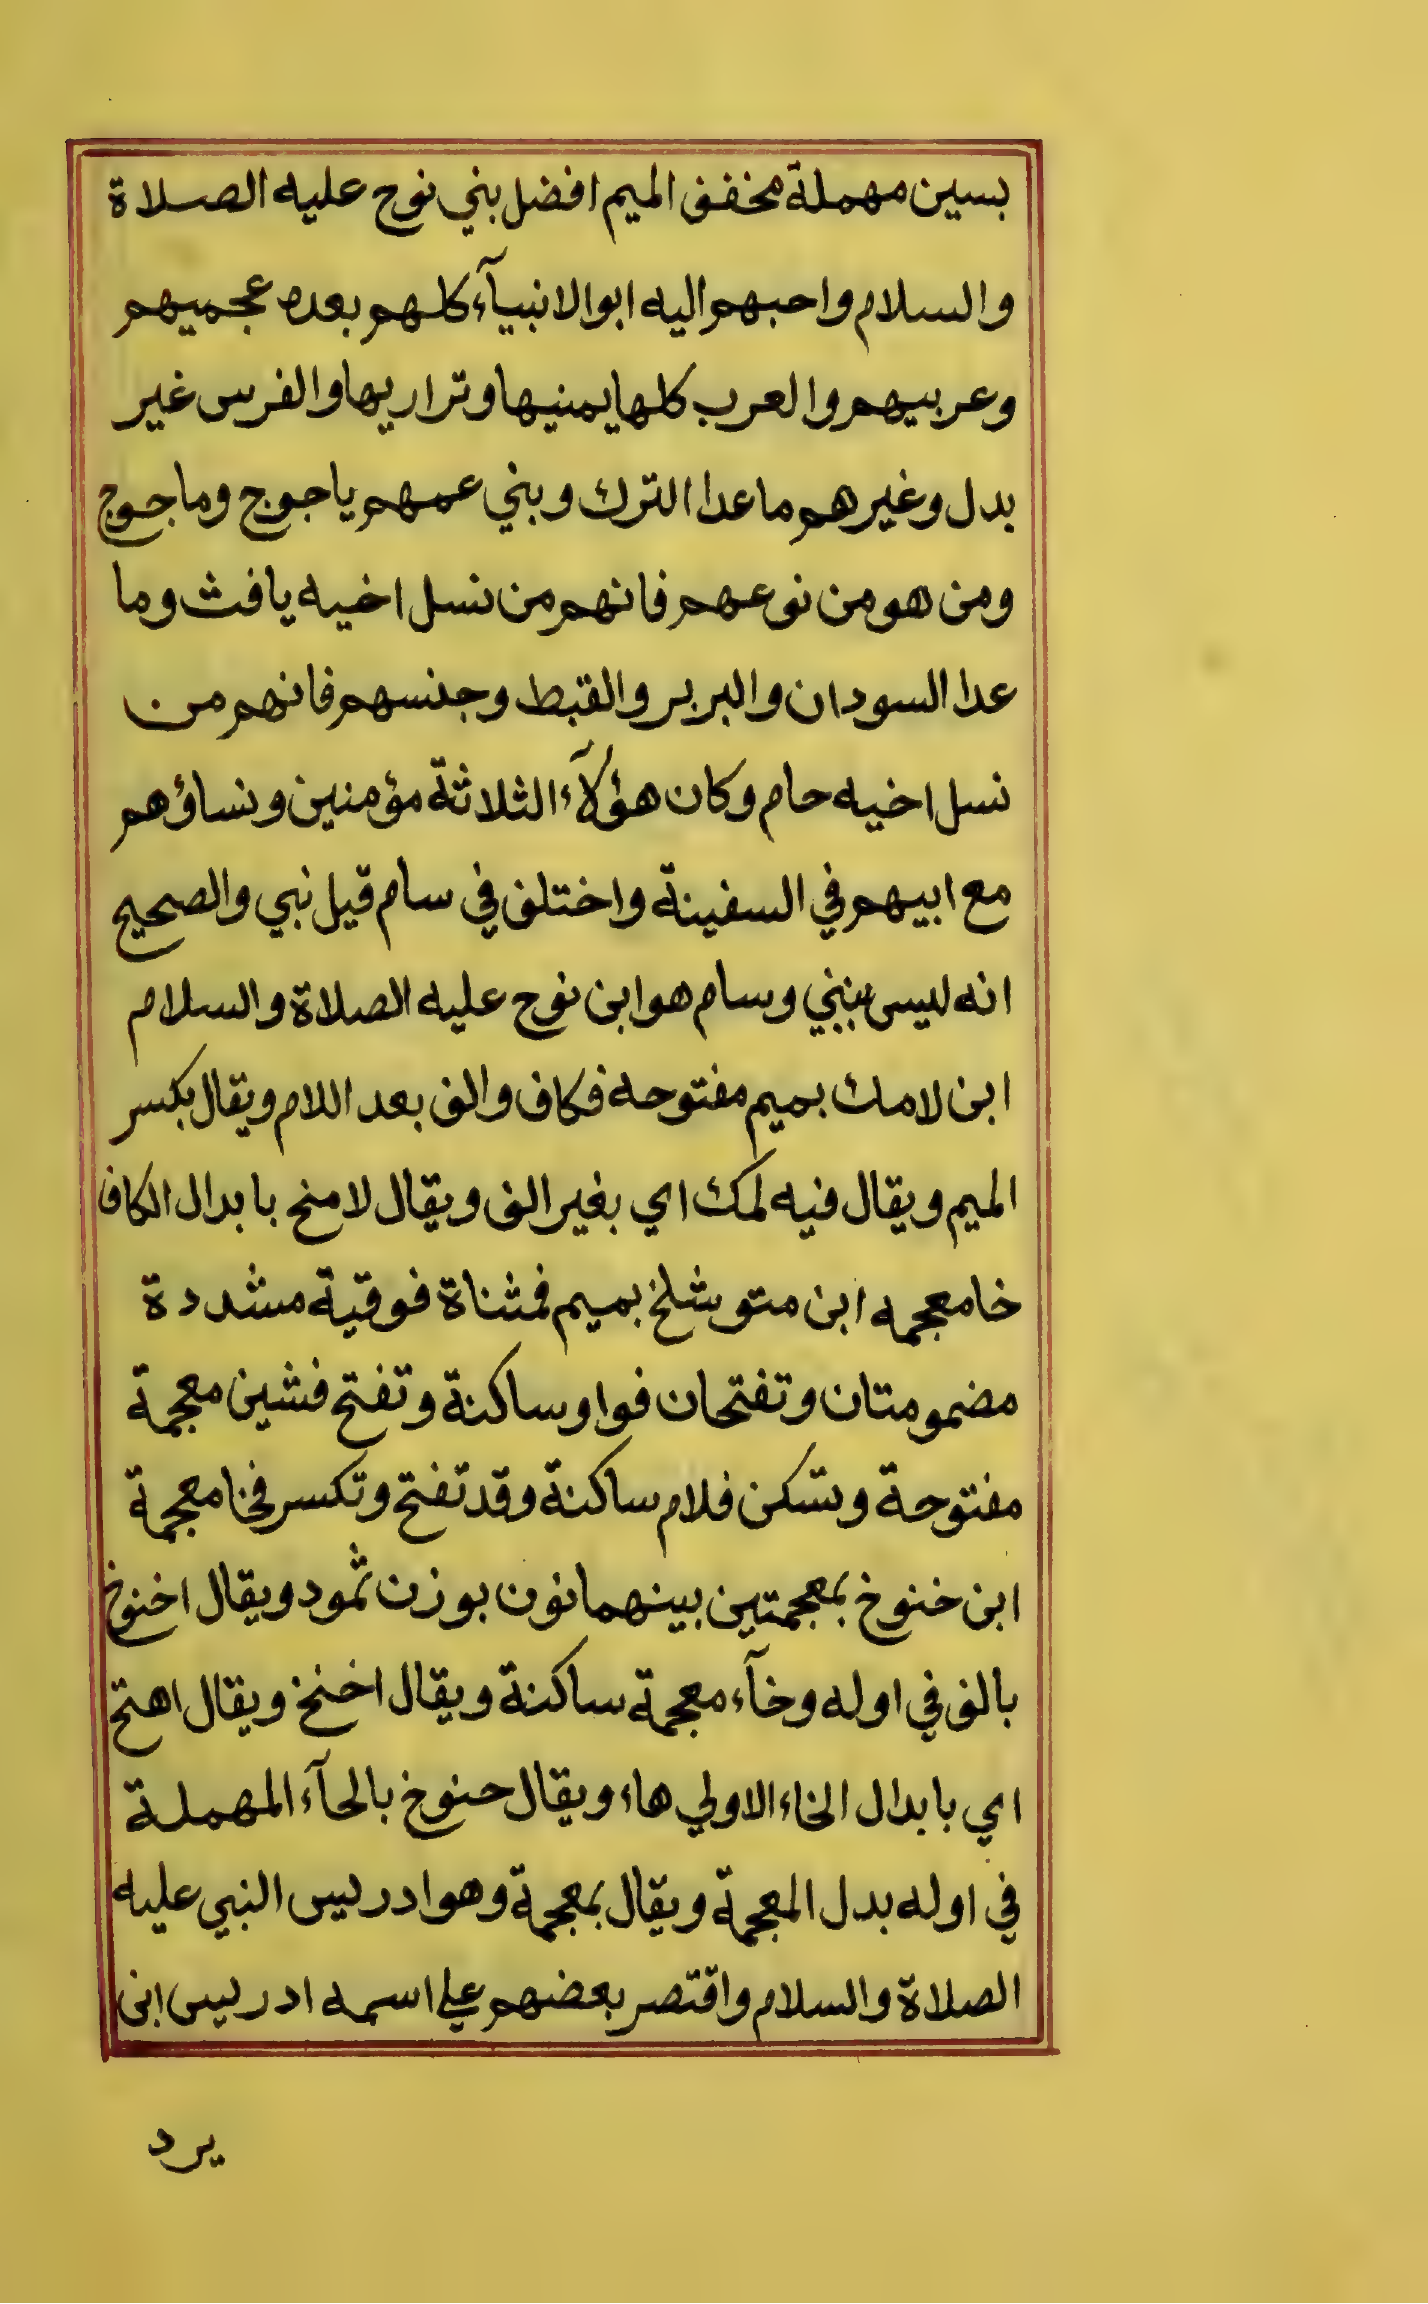 بسين مهملة مخفف الميم افضل بني نوح عليه الصلاة
والسلام واحبهم اليه ابو الانبيآء كلهم بعده عجميهم
وعربيهم والعرب كلها يمنيها وتراريها والفرس غير
بدل وغيرهم ما عدا الترك وبني عمهم ياجوج وماجوج
ومن هو من نوعهم فانهم من نسل اخيه يافث وما
عدا السودان والبربر والقبط وجنسهم فانهم من
نسل اخيه حام وكان هؤلآء الثلاثة مؤمنين ونساؤهم
مع ابيهم في السفينة واختلف في سام قيل نبي والصحيح
انه ليس بنبي وسام هو ابن نوح عليه الصلاة والسلام
ابن لامك بميم مفتوحه فكاف والف بعد اللام ويقال بكسر
الميم ويقال فيه لمك اي بغير الف ويقال لامخ بابدال الكاف
خا معجمه ابن متوشلخ بميم فمثناة فوقية مشددة
مضمومتان وتفتحان فواو ساكنة وتفتح فشين معجمة
مفتوحة وتسكن فلام ساكنة وقد تفتح وتكسر فخا معجمة
ابن خنوخ بمعجمتين بينهما نون بوزن ثمود ويقال اخنوخ
بالف في اوله وخآء معجمة ساكنة ويقال اخنخ ويقال اهتخ
اي بابدال الخاء الاولي هاء ويقال حنوخ بالحآء المهملة
في اوله بدل المعجمة ويقال بمعجمة وهو ادريس النبي عليه
الصلاة والسلام واقتصر بعضهم علي اسمه ادريس ابن
يرد